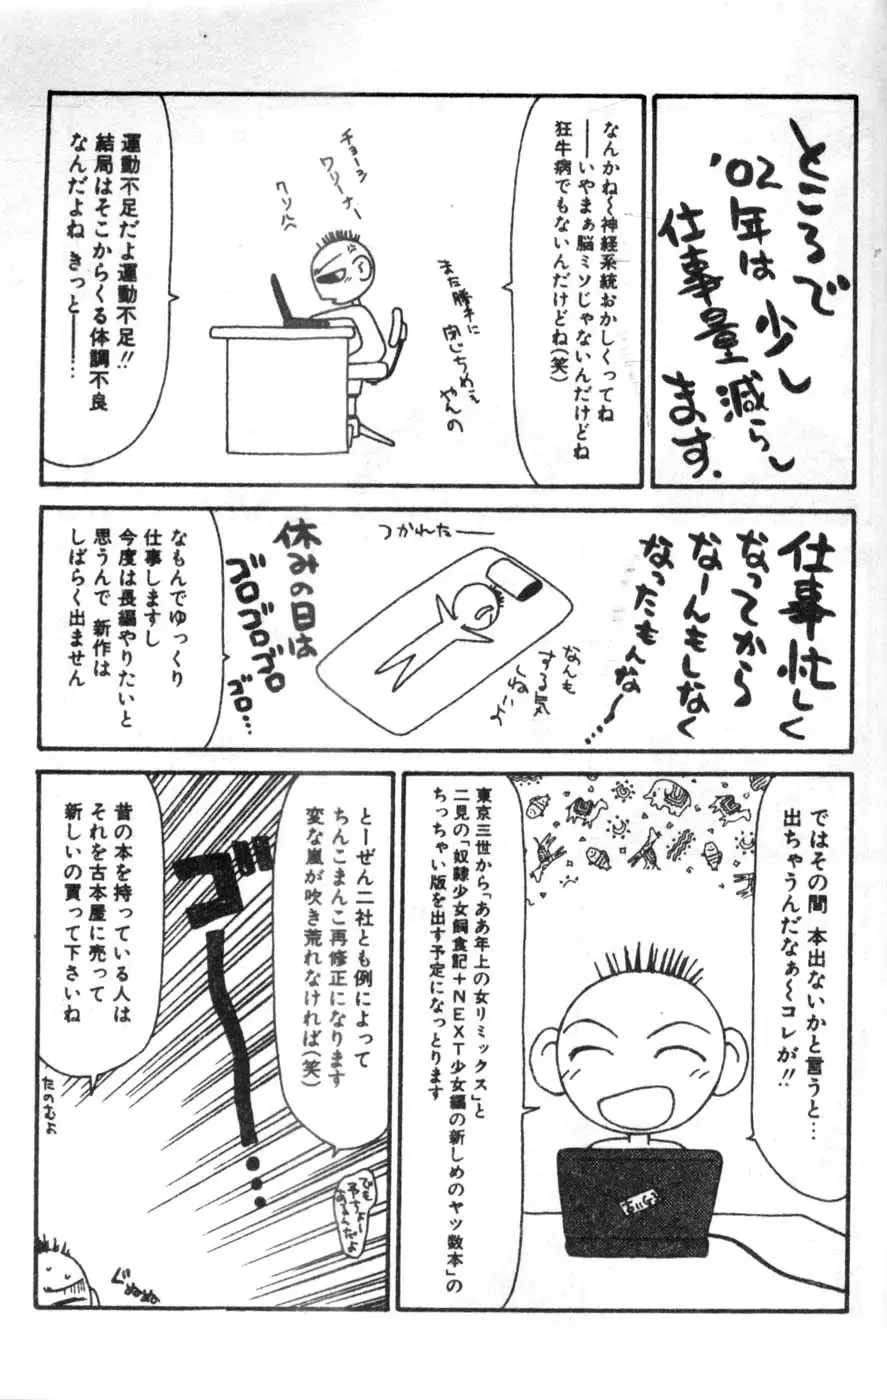 ところで
'02年は少し
仕事量減らし
ます.
なんかね〜神経系統おかしくってね
――いやまぁ脳ミソじゃないんだけどね
狂牛病でもないんだけどね(笑)
チョーシ
ワリーナー
クソル〜
また勝手に
閉じちめぇ
やんの
運動不足だよ運動不足!!
結局はそこからくる体調不良
なんだよね きっと――…
仕事忙しく
なってから
なーんもしなく
なったもんな〜…
つかれたー
なんも
する気
しねーよ
休みの日は
ゴロゴロゴロ
ゴロ…
なもんでゆっくり
仕事しますし
今度は長編やりたいと
思うんで 新作は
しばらく出ません
ではその間 本出ないかと言うと…
出ちゃうんだなぁ〜コレが!!
東京三世から「ああ年上の女リミックス」と
二見の「奴隷少女飼食記+NEXT少女編の新しめのヤツ数本」の
ちっちゃい版を出す予定になっとります
とーぜん二社とも例によって
ちんこまんこ再修正になります
変な嵐が吹き荒れなければ(笑)
でも
予ちょー
あるんだよ
ゴ――…
昔の本を持っている人は
それを古本屋に売って
新しいの買って下さいね
たのむよ
ぐぬぬぬ